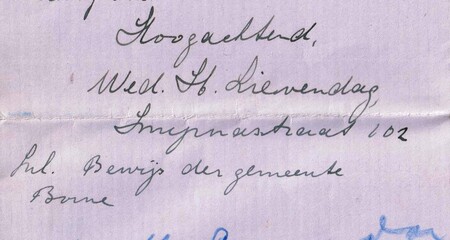 Hoogachtend,
Wed. St. Lievendag
Smyrnastraat 102
Inl. Bewijs der gemeente
Borne